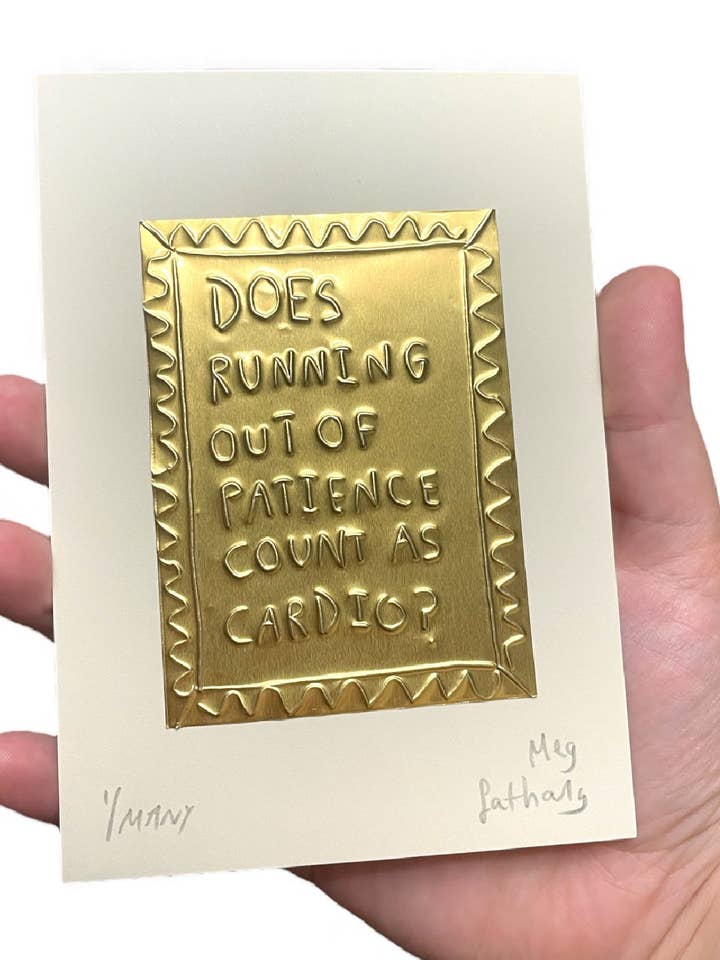 DOES
RUNNING
OUT OF
PATIENCE
COUNT AS
CARDIO?
1/MANY
Meg